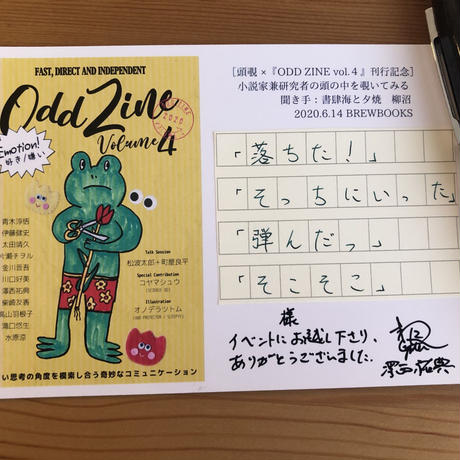 FAST, DIRECT AND INDEPENDENT
Odd Zine
Volume 4
2020
Emotion!
好き/嫌い
青木淳悟
伊藤健史
太田靖久
片瀬チヲル
金川晋吾
川口好美
澤西祐典
柴崎友香
高山羽根子
滝口悠生
水原涼
Talk Session
松波太郎+町屋良平
Special Contribution
コヤマシュウ
Illustration
オノデラツトム
い思考の角度を模索し合う奇妙なコミュニケーション
[頭覗 ×『ODD ZINE vol.4』刊行記念]
小説家兼研究者の頭の中を覗いてみる
聞き手：書肆海と夕焼 柳沼
2020.6.14 BREWBOOKS
「落ちた！」
「そっちにいった」
「弾んだっ」
「そこそこ」
様
イベントにお越し下さり、
ありがとうございました。
澤西祐典